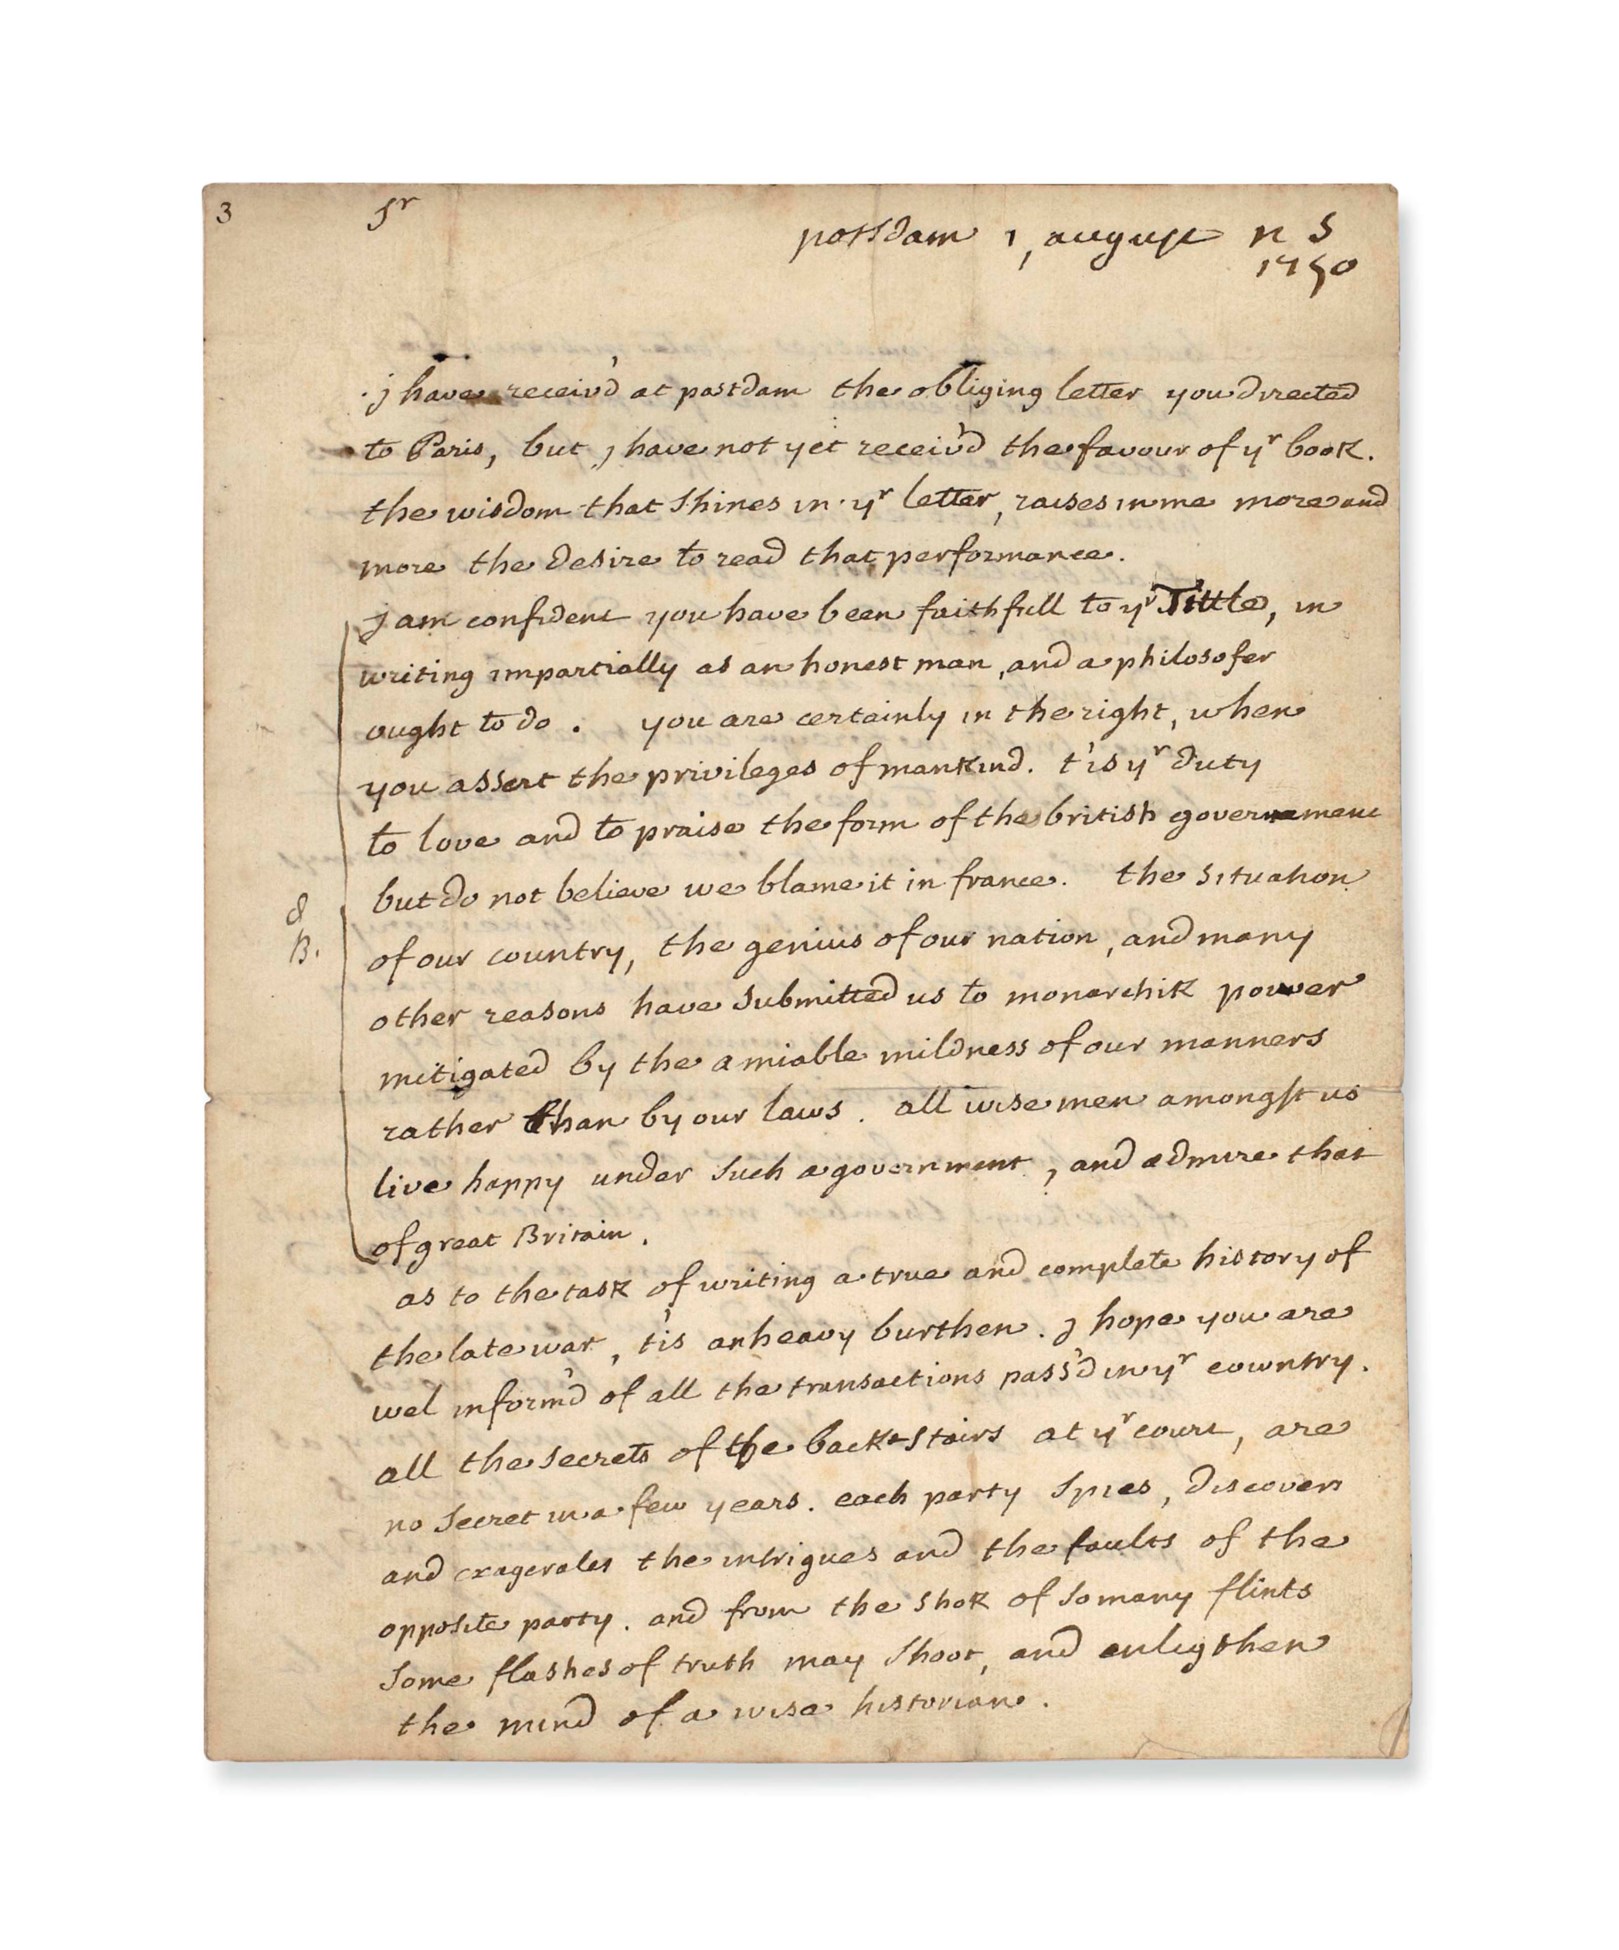 3
Sr
potsdam 1, august n S
1750
j have receiv'd at postdam the obliging letter you directed
to Paris, but j have not yet receiv'd the favour of yr book.
the wisdom that shines in yr letter, raises in me more and
more the desire to read that performance.
j am confident you have been faithfull to yr Tittle, in
writing impartially as an honest man, and a philosofer
ought to do. you are certainly in the right, when
you assert the privileges of mankind. t'is yr duty
to love and to praise the form of the british governement
but do not believe we blame it in france. the situation
of our country, the genius of our nation, and many
other reasons have submitted us to monarchik power
mitigated by the amiable mildness of our manners
rather than by our laws. all wise men amongst us
live happy under such a government, and admire that
of great Britain.
as to the task of writing a true and complete history of
the late war, t'is an heavy burthen. j hope you are
wel inform'd of all the transactions pass'd in yr cowntry.
all the secrets of the back-stairs at yr court, are
no secret in a few years. each party spies, discovers
and exagerates the intrigues and the faults of the
opposite party. and from the shok of so many flints
some flashes of truth may shoot, and enligthen
the mind of a wise historian.
B.